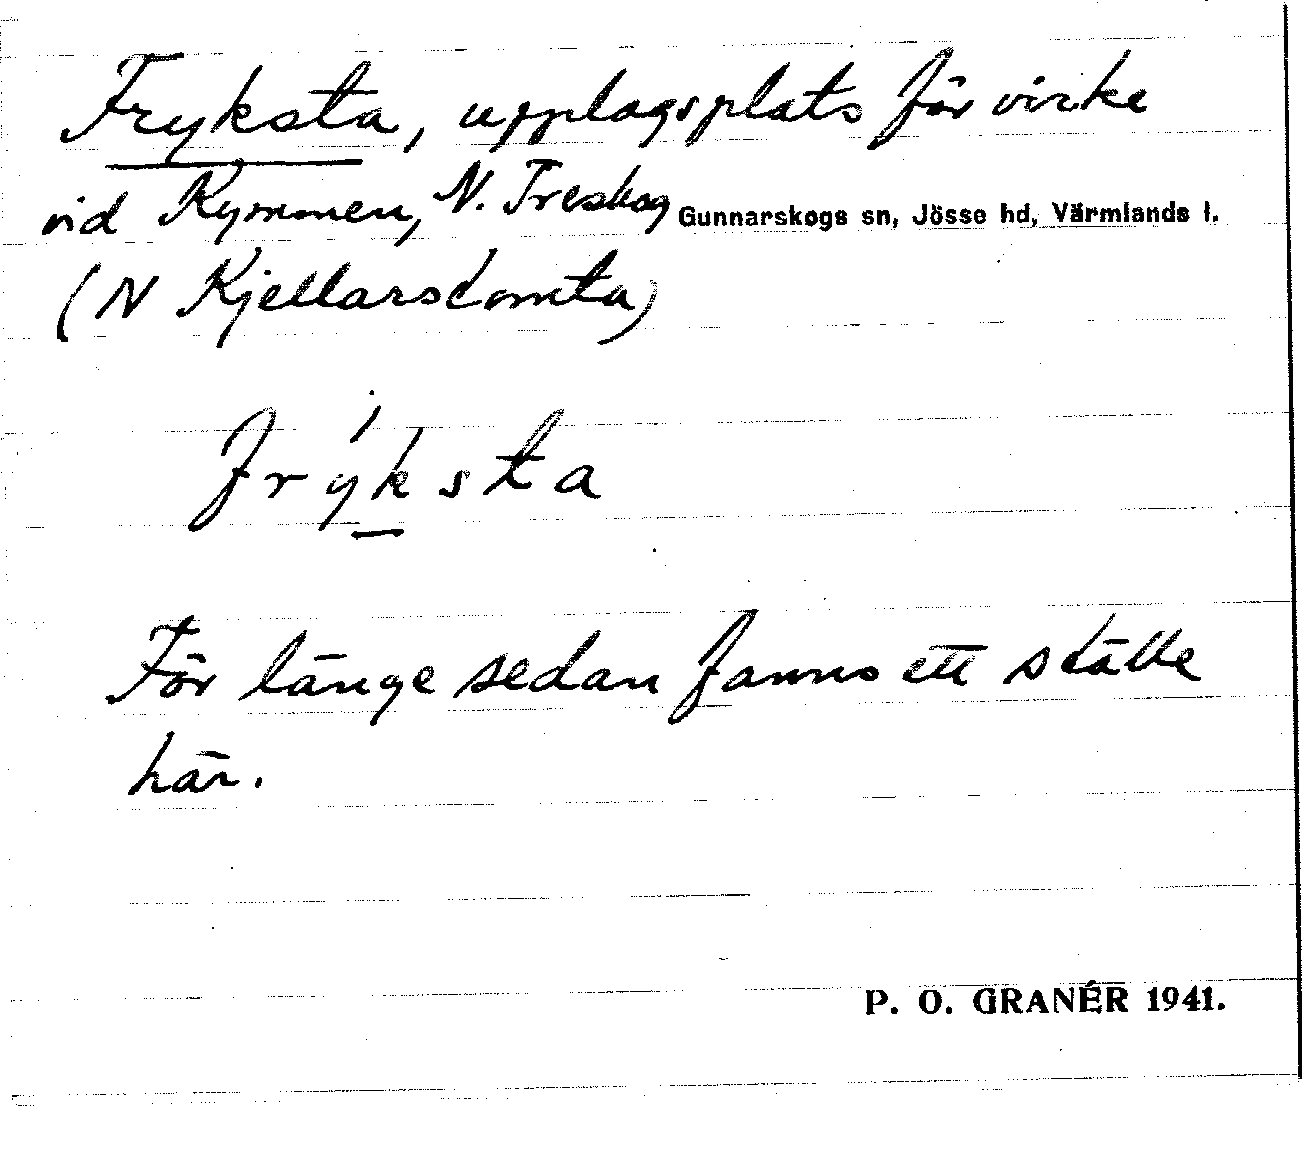 Fryksta, upplagsplats för virke
vid Kymmen, N. Treskog Gunnarskogs sn, Jösse hd, Värmlands l.
(N Kjellarstomta)
frýksta
För länge sedan fanns ett ställe
här.
P. O. GRANÉR 1941.